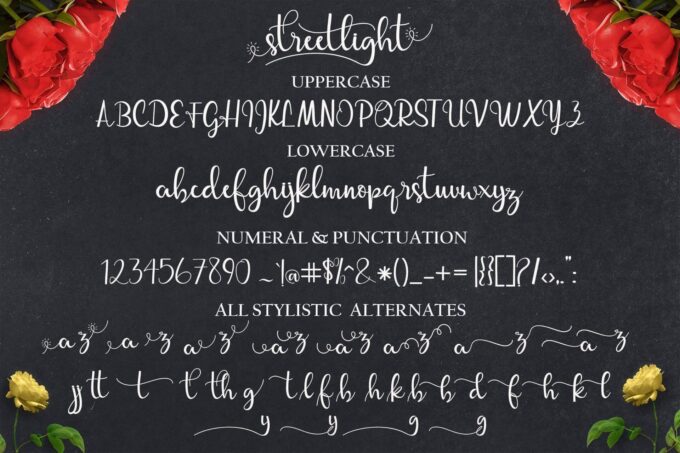 streetlight
UPPERCASE
ABCDEFGHIJKLMNOPQRSTUVWXYZ
LOWERCASE
abcdefghijklmnopqrstuvwxyz
NUMERAL & PUNCTUATION
1234567890 ~`!@#$%^&*()_-+= |}{[]?/<>,.":
ALL STYLISTIC ALTERNATES
a z a z a z a z a z a z a z a z
jj tt t t th g t l f b h k k b b d f h k l
y y g g